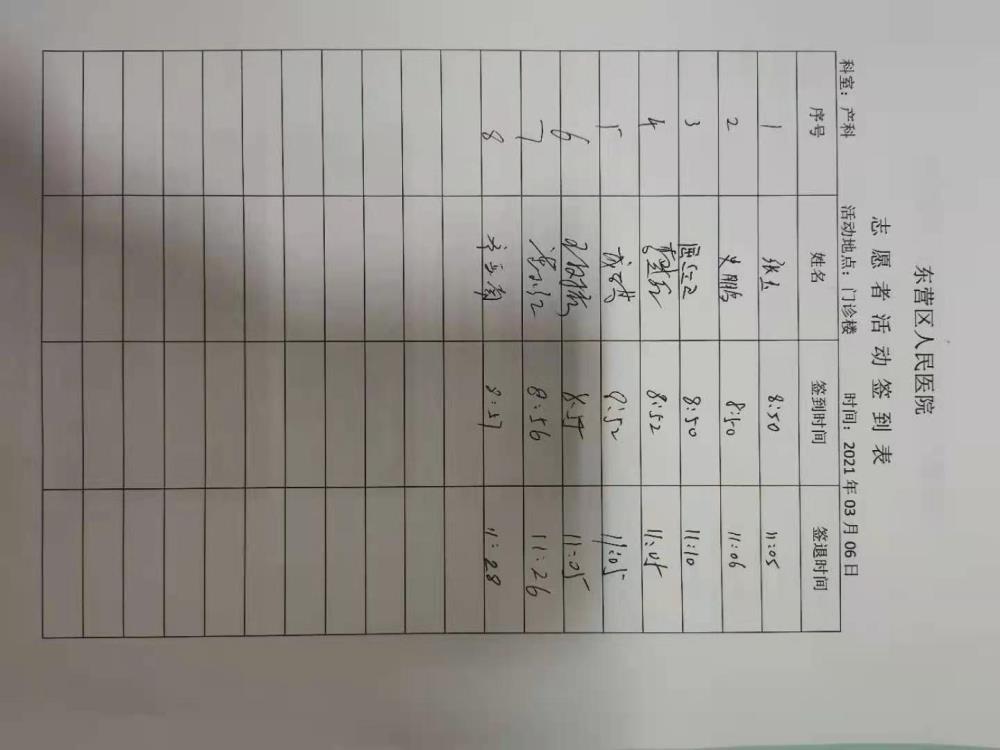 东营区人民医院
志愿者活动签到表
科室：产科 活动地点：门诊楼 时间：2021年03月06日
序号 姓名 签到时间 签退时间
1 张玉 8:50 11:05
2 史鹏 8:50 11:06
3 8:50 11:10
4 8:52 11:05
5 8:52 11:05
6 8:55 11:05
7 8:56 11:26
8 8:57 11:28